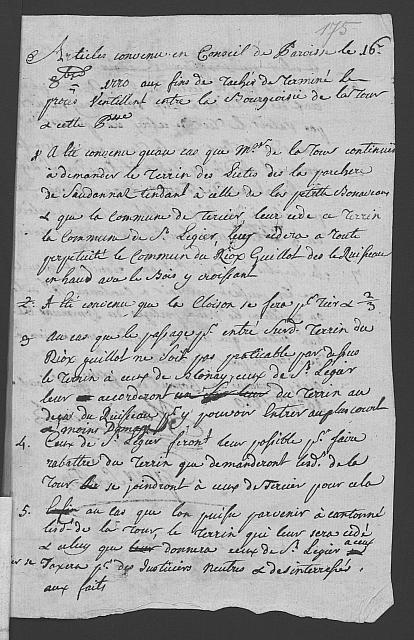 175
Articles convenu en Conseil de Paroisse le 16.e
8bre 1770 aux fins de tachés de terminé le
procès Ventillent entre la Bourgeoisie de la Tour
& cette Psse
1 A été convenu quau cas que Mrs de la Tour continuer
à demander le Terrin des
de Saudannaz tendant à cille de la petitte
& que la Commune de Tercier leur cède ce Terrin
la Commune de St Legier leur cédera a toute
perpetuité le Commun du Riox Guillot dès le Ruisseau
en haud avec le Bois y croissant
2. A été convenu que la Cloison se fera pr tier & 2/3
3 Au cas que le passage pr entré Surd. Terrin du
Riox guillot ne soit pas praticable par dessus
le Terrin à ceux de Blonay, ceux de St Legier
leur accorderont du Terrin au
deças du Ruisseau pr y pouvoir Entrer au plus court
& moins Domageable
4. Ceux de St Legier feront leur possible pr faire
rabattre du Terrin que demanderont lesd. de la
Tour se joindront à ceux de Tercier pour cela
5. au cas que lon puisse parvenir à cantonné
lesd. de la Tour le Terrin qui leur sera cédé
& celuy que donnera ceux de St Legier a eux
se Taxera pr des Justiciers neutres & desinteressés,
aux faits